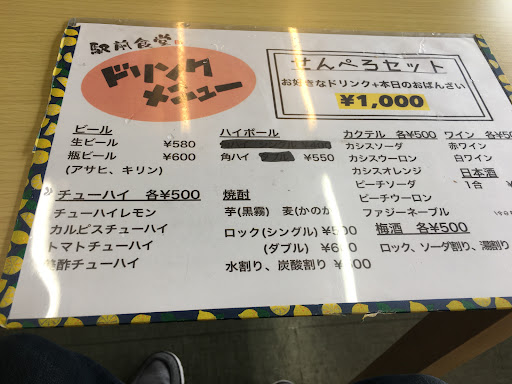 駅前食堂の
ドリンク
メニュー
せんべろセット
お好きなドリンク+本日のおばんざい
¥1,000
ビール
生ビール ¥580
瓶ビール ¥600
(アサヒ、キリン)
チューハイ 各¥500
チューハイレモン
カルピスチューハイ
トマトチューハイ
酢チューハイ
ハイボール
角ハイ ¥550
焼酎
芋(黒霧) 麦(かのか
ロック(シングル) ¥500
(ダブル) ¥600
水割り、炭酸割り
カクテル 各¥500
カシスソーダ
カシスウーロン
カシスオレンジ
ピーチソーダ
ピーチウーロン
ファジーネーブル
梅酒 各¥500
ロック、ソーダ割り、湯割り
ワイン 各¥50
赤ワイン
白ワイン
日本酒
1合